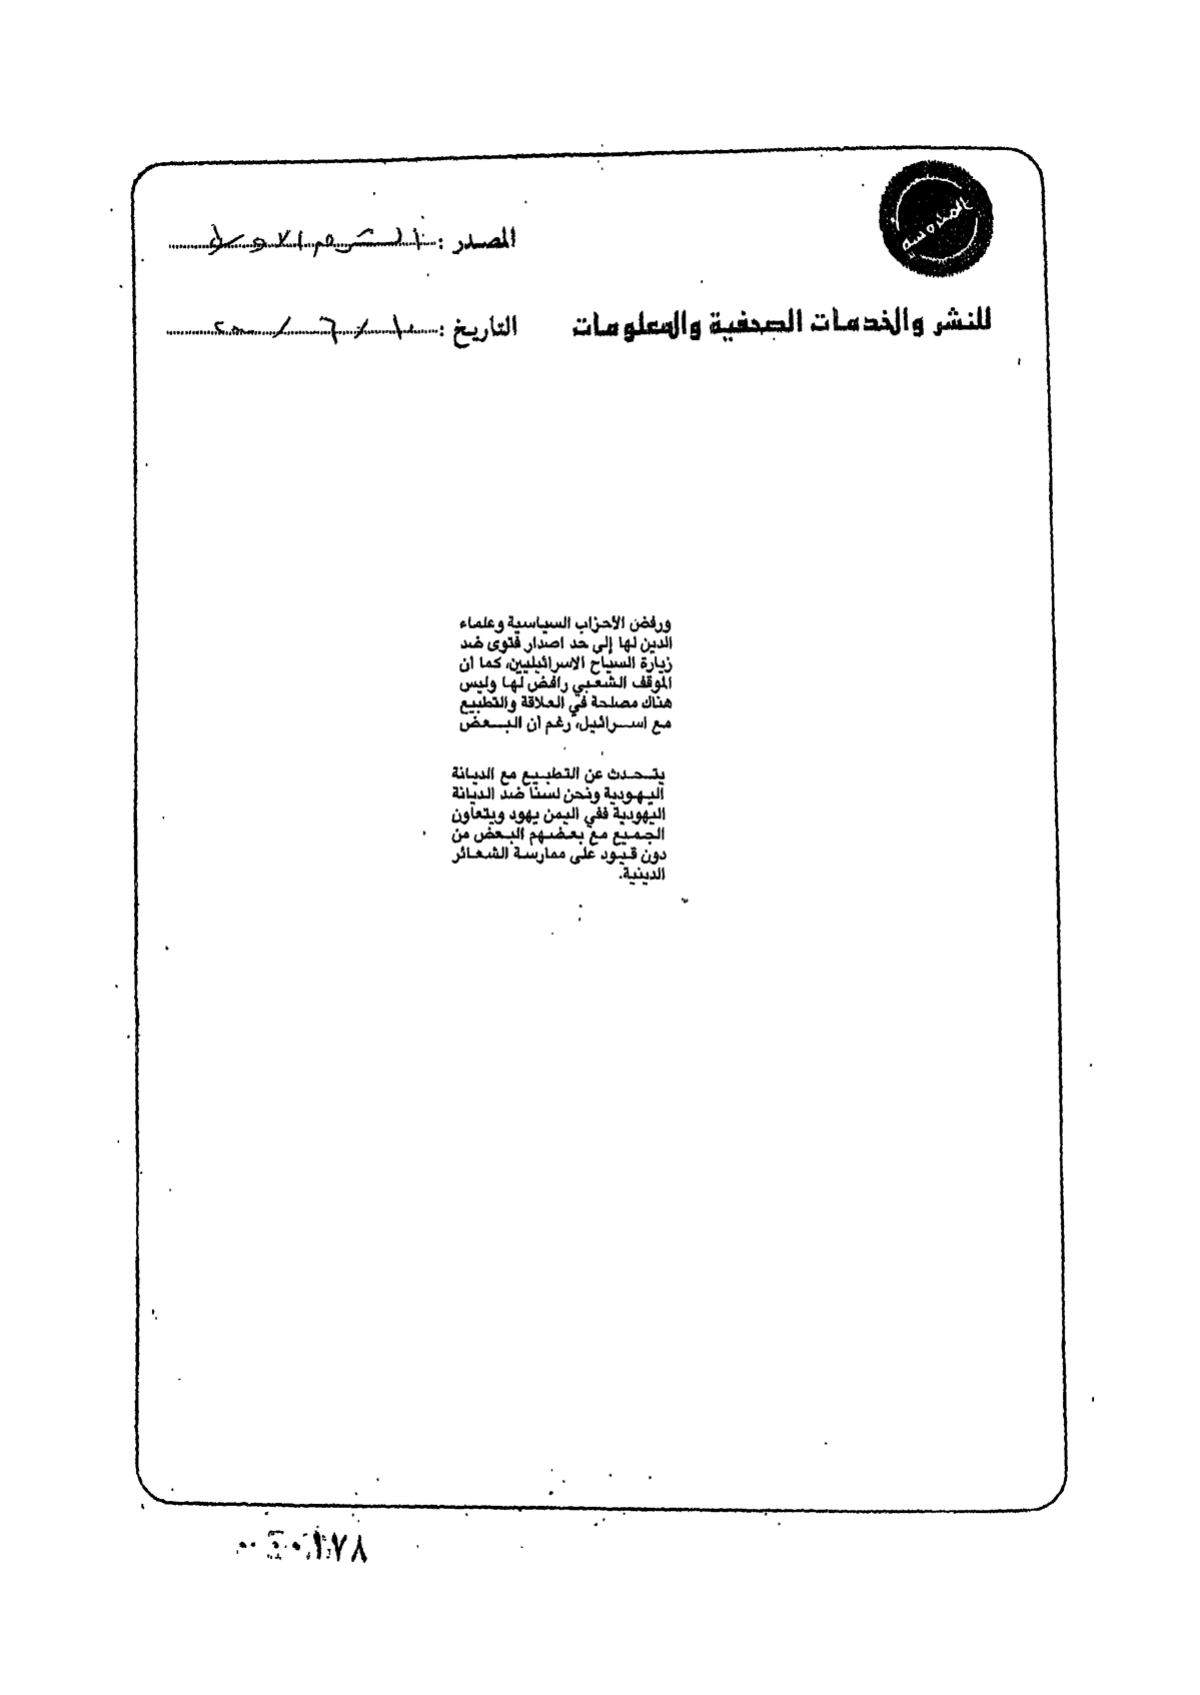 المصدر : الشرق الأوسط
للنشر والخدمات الصحفية والمعلومات
التاريخ : ١٠ / ٦ / ٢٠٠٠
ورفض الأحزاب السياسية وعلماء
الدين لها إلى حد اصدار فتوى ضد
زيارة السياح الاسرائيليين، كما ان
الموقف الشعبي رافض لها وليس
هناك مصلحة في العلاقة والتطبيع
مع اسرائيل، رغم ان البعض
يتحدث عن التطبيع مع الديانة
اليهودية ونحن لسنا ضد الديانة
اليهودية ففي اليمن يهود ويتعاون
الجميع مع بعضهم البعض من
دون قيود على ممارسة الشعائر
الدينية.